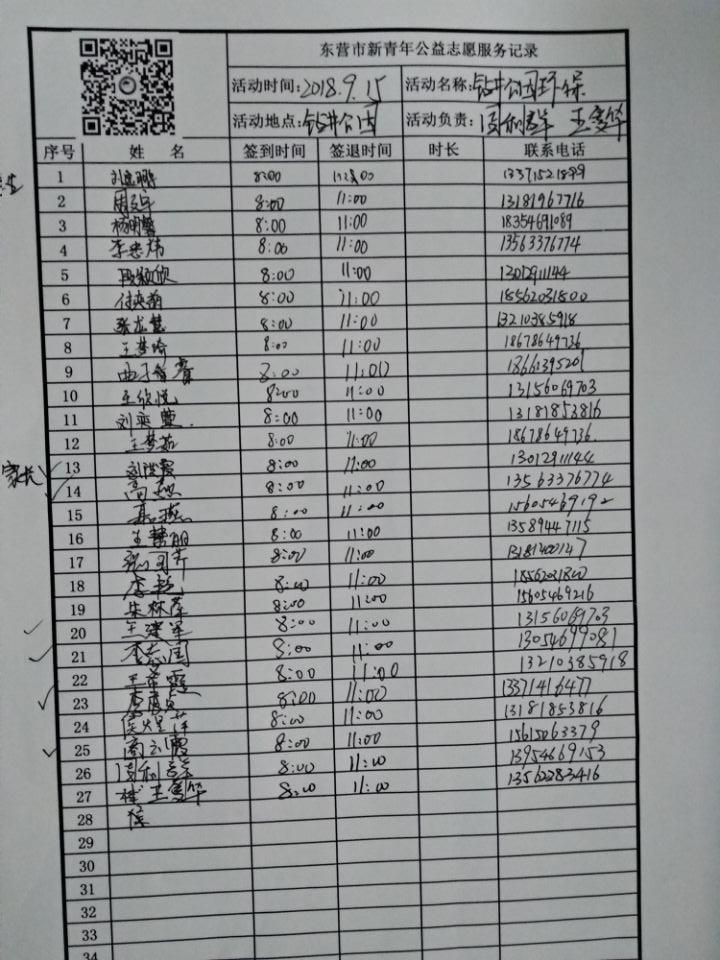 东营市新青年公益志愿服务记录
活动时间:2018.9.15 活动名称:钻井公园环保
活动地点:钻井公园 活动负责:周利群 王爱华
序号 姓 名 签到时间 签退时间 时长 联系电话
1 8:00
2 周文宇 8:00 11:00 13181967716
3 杨明馨 8:00 11:00 18354691089
4 李忠炜 8:00 11:00 13563376774
5 段颖欣 8:00 11:00 13012911144
6 付奕萌 8:00 11:00 18562031800
7 张龙慧 8:00 11:00 13210385918
8 王梦琦 8:00 11:00 18678649736
9 8:00 11:00 18661395201
10 王欣悦 8:00 11:00 13156069703
11 刘奕萱 8:00 11:00 13181853816
12 王梦茹 8:00 11:00 18678649736
家长 13 8:00 11:00 13012911144
14 高燕 8:00 11:00 13563376774
15 8:00 11:00 15605469192
16 王慧丽 8:00 11:00 13589447115
17 8:00 11:00 13181400147
18 李艳 8:00 11:00 18562031800
19 朱林萍 8:00 11:00 15605469216
20 王建军 8:00 11:00 13156069703
21 李志国 8:00 11:00 13054699081
22 王荣霞 8:00 11:00 13210385918
23 8:00 11:00 13371416477
24 侯煜萍 8:00 11:00 13181853816
25 商云霞 8:00 11:00 15615063379
26 周利群 8:00 11:00 13954669153
27 王爱华 8:00 11:00 13562283416
28
29
30
31
32
33
34